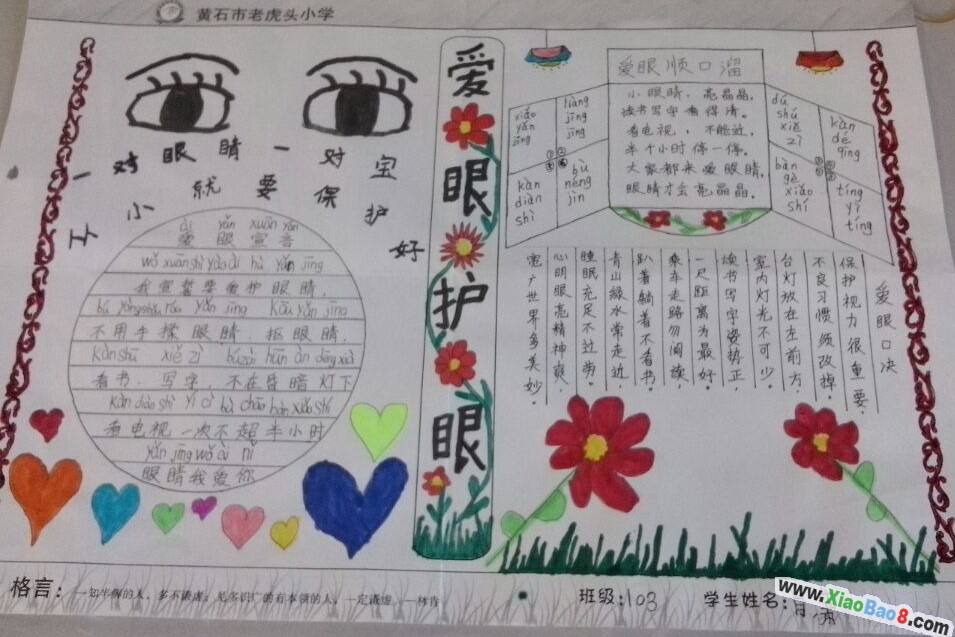 黄石市老虎头小学
一对眼睛一对宝
从小就要保护好
ài yǎn xuān yán
爱眼宣言
wǒ xuān shì yào ài hù yǎn jīng
我宣誓要爱护眼睛,
bú yòng shǒu róu yǎn jīng kōu yǎn jīng
不用手揉眼睛 抠眼睛,
kàn shū xiě zì bú zài hūn àn dēng xià
看书、写字,不在昏暗灯下
kàn diàn shì yí cì bù chāo bàn xiǎo shí
看电视一次不超半小时
yǎn jīng wǒ ài nǐ
眼睛我爱你
爱眼护眼
爱眼顺口溜
小眼睛,亮晶晶,
读书写字看得清。
看电视,不能近,
半个小时停一停。
大家都来爱眼睛,
眼睛才会亮晶晶。
xiǎo
yǎn
jīng
liàng
jīng
jīng
kàn
diàn
shì
bù
néng
jìn
dú
shū
xiě
zì
kàn
dé
qīng
bàn
gè
xiǎo
shí
tíng
yī
tíng
爱眼口决
保护视力很重要,
不良习惯须改掉。
台灯放在左前方,
室内灯光不可少。
读书写字姿势正,
一尺距离为最好。
乘车走路勿阅读,
趴着躺着不看书。
青山绿水常走近,
睡眠充足不过劳。
心明眼亮精神爽,
宽广世界多美妙。
格言:一知半解的人,多不谦虚;见多识广的有本领的人,一定谦虚。—林肯
班级:103
学生姓名:
www.XiaoBao8.com